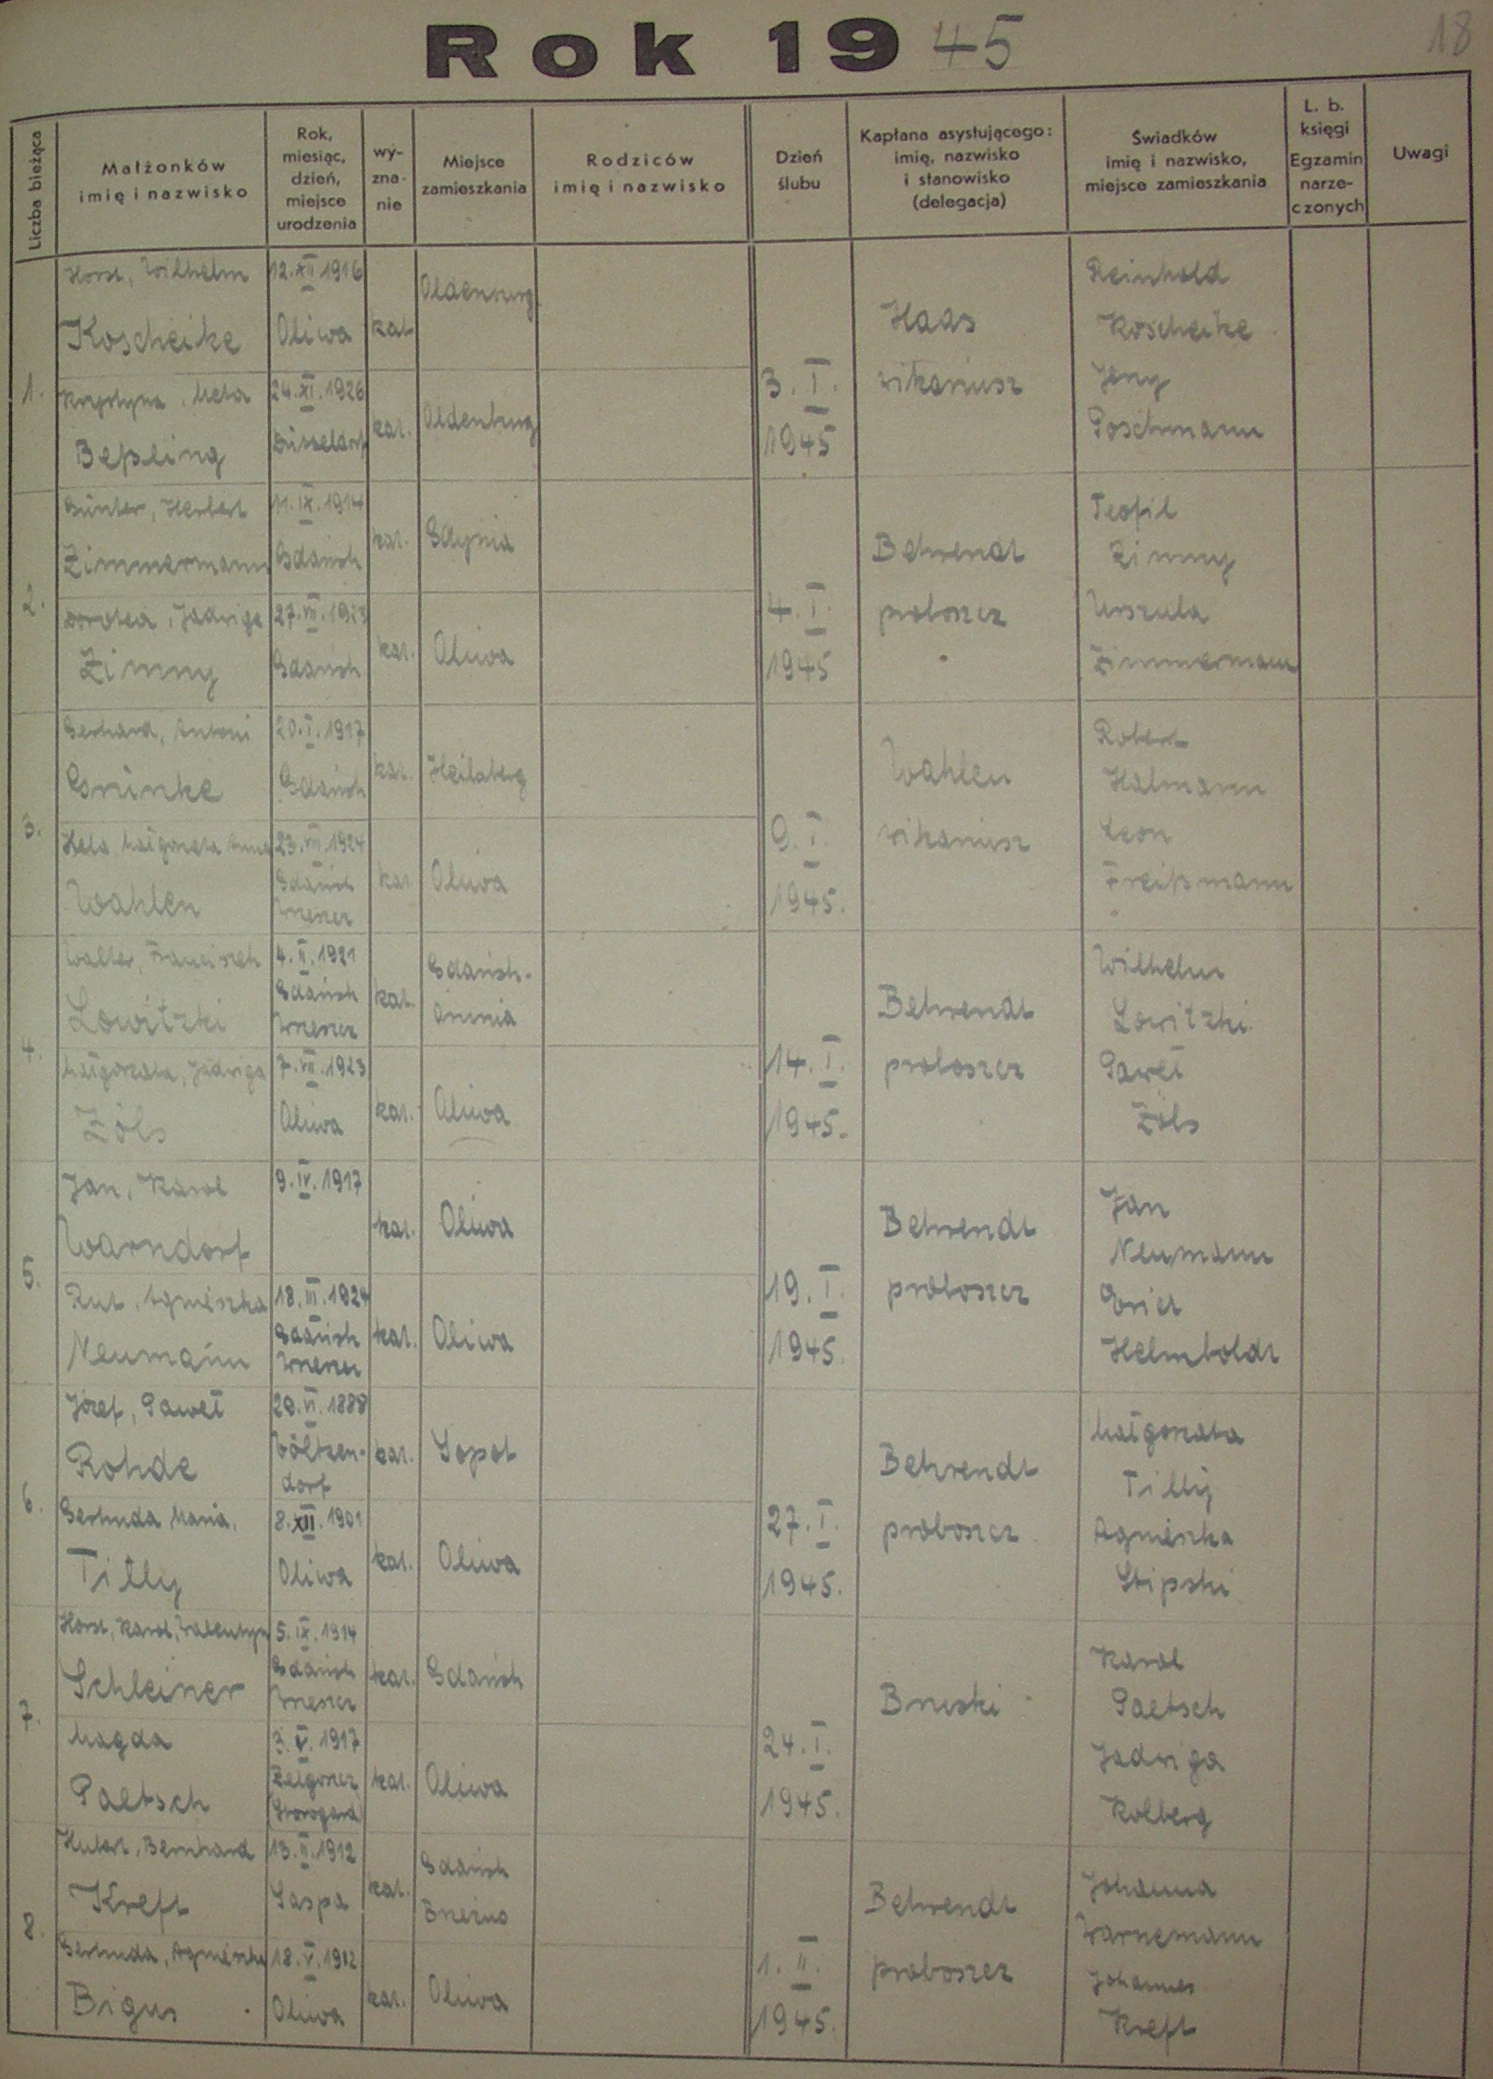 Rok 1945
18
Liczba bieżąca
Małżonków
imię i nazwisko
Rok,
miesiąc,
dzień,
miejsce
urodzenia
wy-
zna-
nie
Miejsce
zamieszkania
Rodziców
imię i nazwisko
Dzień
ślubu
Kapłana asystującego:
imię, nazwisko
i stanowisko
(delegacja)
Świadków
imię i nazwisko,
miejsce zamieszkania
L. b.
księgi
Egzamin
narze-
czonych
Uwagi
1.
Horst, Wilhelm
Koscheike
12.XII.1916
Oliwa
kat
Oldenburg
Krystyna, Meta
Beßling
24.XI.1926
Düsseldorf
kat.
Oldenburg
3.I.
1945
Haas
wikariusz
Reinhold
Koscheike
Jerzy
Poschmann
2.
Günter, Herbert
Zimmermann
11.IX.1914
Gdańsk
kat.
Gdynia
Dorotea, Jadwiga
Zimny
27.VII.1923
Gdańsk
kat.
Oliwa
4.I.
1945
Behrendt
proboszcz
Teofil
Zimny
Urszula
Zimmermann
3.
Gerhard, Antoni
20.I.1917
Gdańsk
kat.
Heilsberg
Małgorzata Anna
Wahlen
23.VII.1924
Gdańsk
Wrzeszcz
kat
Oliwa
I.
1945.
Wahlen
wikariusz
Robert
Halmann
Leon
Freißmann
4.
Walter, Franciszek
Lowitzki
4.II.1921
Gdańsk
Wrzeszcz
kat.
Gdańsk-
Orunia
Małgorzata, Jadwiga
Zöls
7.VII.1923
Oliwa
kat.
Oliwa
14.I.
1945.
Behrendt
proboszcz
Wilhelm
Lowitzki
Paweł
Zöls
5.
Jan, Karol
Warndorf
9.IV.1917
kat.
Oliwa
Rut, Agnieszka
Neumann
18.III.1924
Gdańsk
Wrzeszcz
kat.
Oliwa
19.I.
1945.
Behrendt
proboszcz
Jan
Neumann
Helmboldt
6.
Józef, Paweł
Rohde
20.VI.1888
Wöltzen-
dorf
kat.
Sopot
Gertruda, Maria,
Tilly
8.XII.1901
Oliwa
kat.
Oliwa
27.I.
1945.
Behrendt
proboszcz
Małgorzata
Tilly
Agnieszka
Stipski
7.
Horst, Karol, Walentyn
Schleiner
5.IX.1914
Gdańsk
Wrzeszcz
kat.
Gdańsk
Magda
Paetsch
3.V.1917
Zelgoszcz
(Starogard)
kat.
Oliwa
24.I.
1945.
Bruski
Karol
Paetsch
Jadwiga
Kolberg
8.
Hubert, Bernhard
Kreft
13.II.1912
Saspa
kat.
Gdańsk
Brzeźno
Gertruda, Agnieszka
Bigus
18.V.1912
Oliwa
kat.
Oliwa
1.II.
1945.
Behrendt
proboszcz
Johanna
Warnemann
Johannes
Kreft